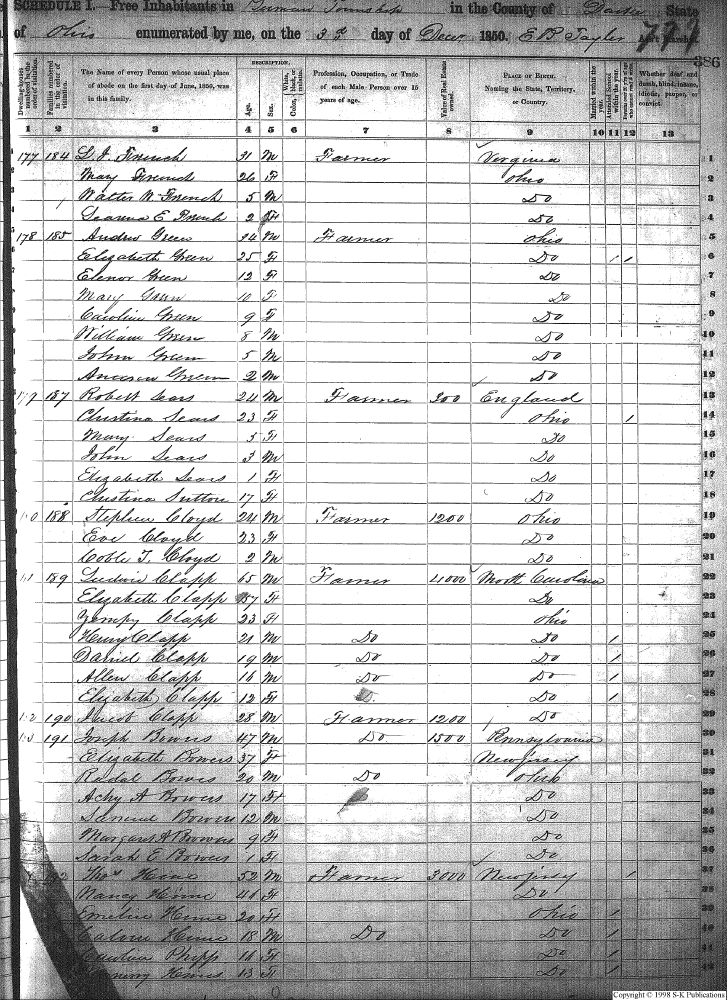 SCHEDULE I. Free Inhabitants in Township in the County of Darke State
of Ohio enumerated by me, on the 3d day of Decr 1850. E B Taylor
771
386
DESCRIPTION.
Dwelling-houses numbered in the order of visitation.
Families numbered in the order of visitation.
The Name of every Person whose usual place of abode on the first day of June, 1850, was in this family.
Age.
Sex.
White, Color, black, or mulatto.
Profession, Occupation, or Trade of each Male Person over 15 years of age.
Value of Real Estate owned.
PLACE OF BIRTH. Naming the State, Territory, or Country.
Married within the year.
Attended School within the year.
Whether deaf and dumb, blind, insane, idiotic, pauper, or convict.
1 2 3 4 5 6 7 8 9 10 11 12 13
177 184 L. J. French 31 M Farmer Virginia 1
Mary French 26 F Ohio 2
Walter W French 5 M Do 3
E French 2 F Do 4
178 185 Andrew Green 24 M Farmer Ohio 5
Elizabeth Green 25 F Do 1 1 6
Elenor Green 12 F Do 7
Mary Green 10 F Do 8
Caroline Green 9 F Do 9
William Green 8 M Do 10
John Green 5 M Do 11
Green 2 M Do 12
179 187 Robert Sears 24 M Farmer 300 England 13
Christina Sears 23 F Ohio 1 14
Mary Sears 5 F Do 15
John Sears 3 M Do 16
Elizabeth Sears 1 F Do 17
Christina Sutton 17 F Do 18
188 Stephen Cloyd 24 M Farmer 1200 Ohio 19
Eve Cloyd 23 F Do 20
Coble T. Cloyd 2 M Do 21
189 Ludwic Clapp 65 M Farmer 4000 North Carolina 22
Elizabeth Clapp 57 F Do 23
Clapp 23 F Ohio 24
Henry Clapp 21 M Do Do 1 25
Daniel Clapp 19 M Do Do 1 26
Allen Clapp 16 M Do Do 1 27
Elizabeth Clapp 12 F Do 1 28
190 Jacob Clapp 28 M Farmer 1200 Do 29
191 Joseph Bowers 47 M Do 1500 Pennsylvania 30
Elizabeth Bowers 37 F New Jersey 31
Bowers 20 M Do Ohio 32
Achy A Bowers 17 F Do 33
Samuel Bowers 12 M Do
Margaret A Bowers 9 F Do
Sarah E Bowers 1 F Do
Thos 52 M Farmer 3000 New Jersey 1
Nancy 41 F Do
20 F Ohio 1
18 M Do Do 1
Phipps 16 F Do 1
13 F Do 1
Copyright © 1998 S-K Publications